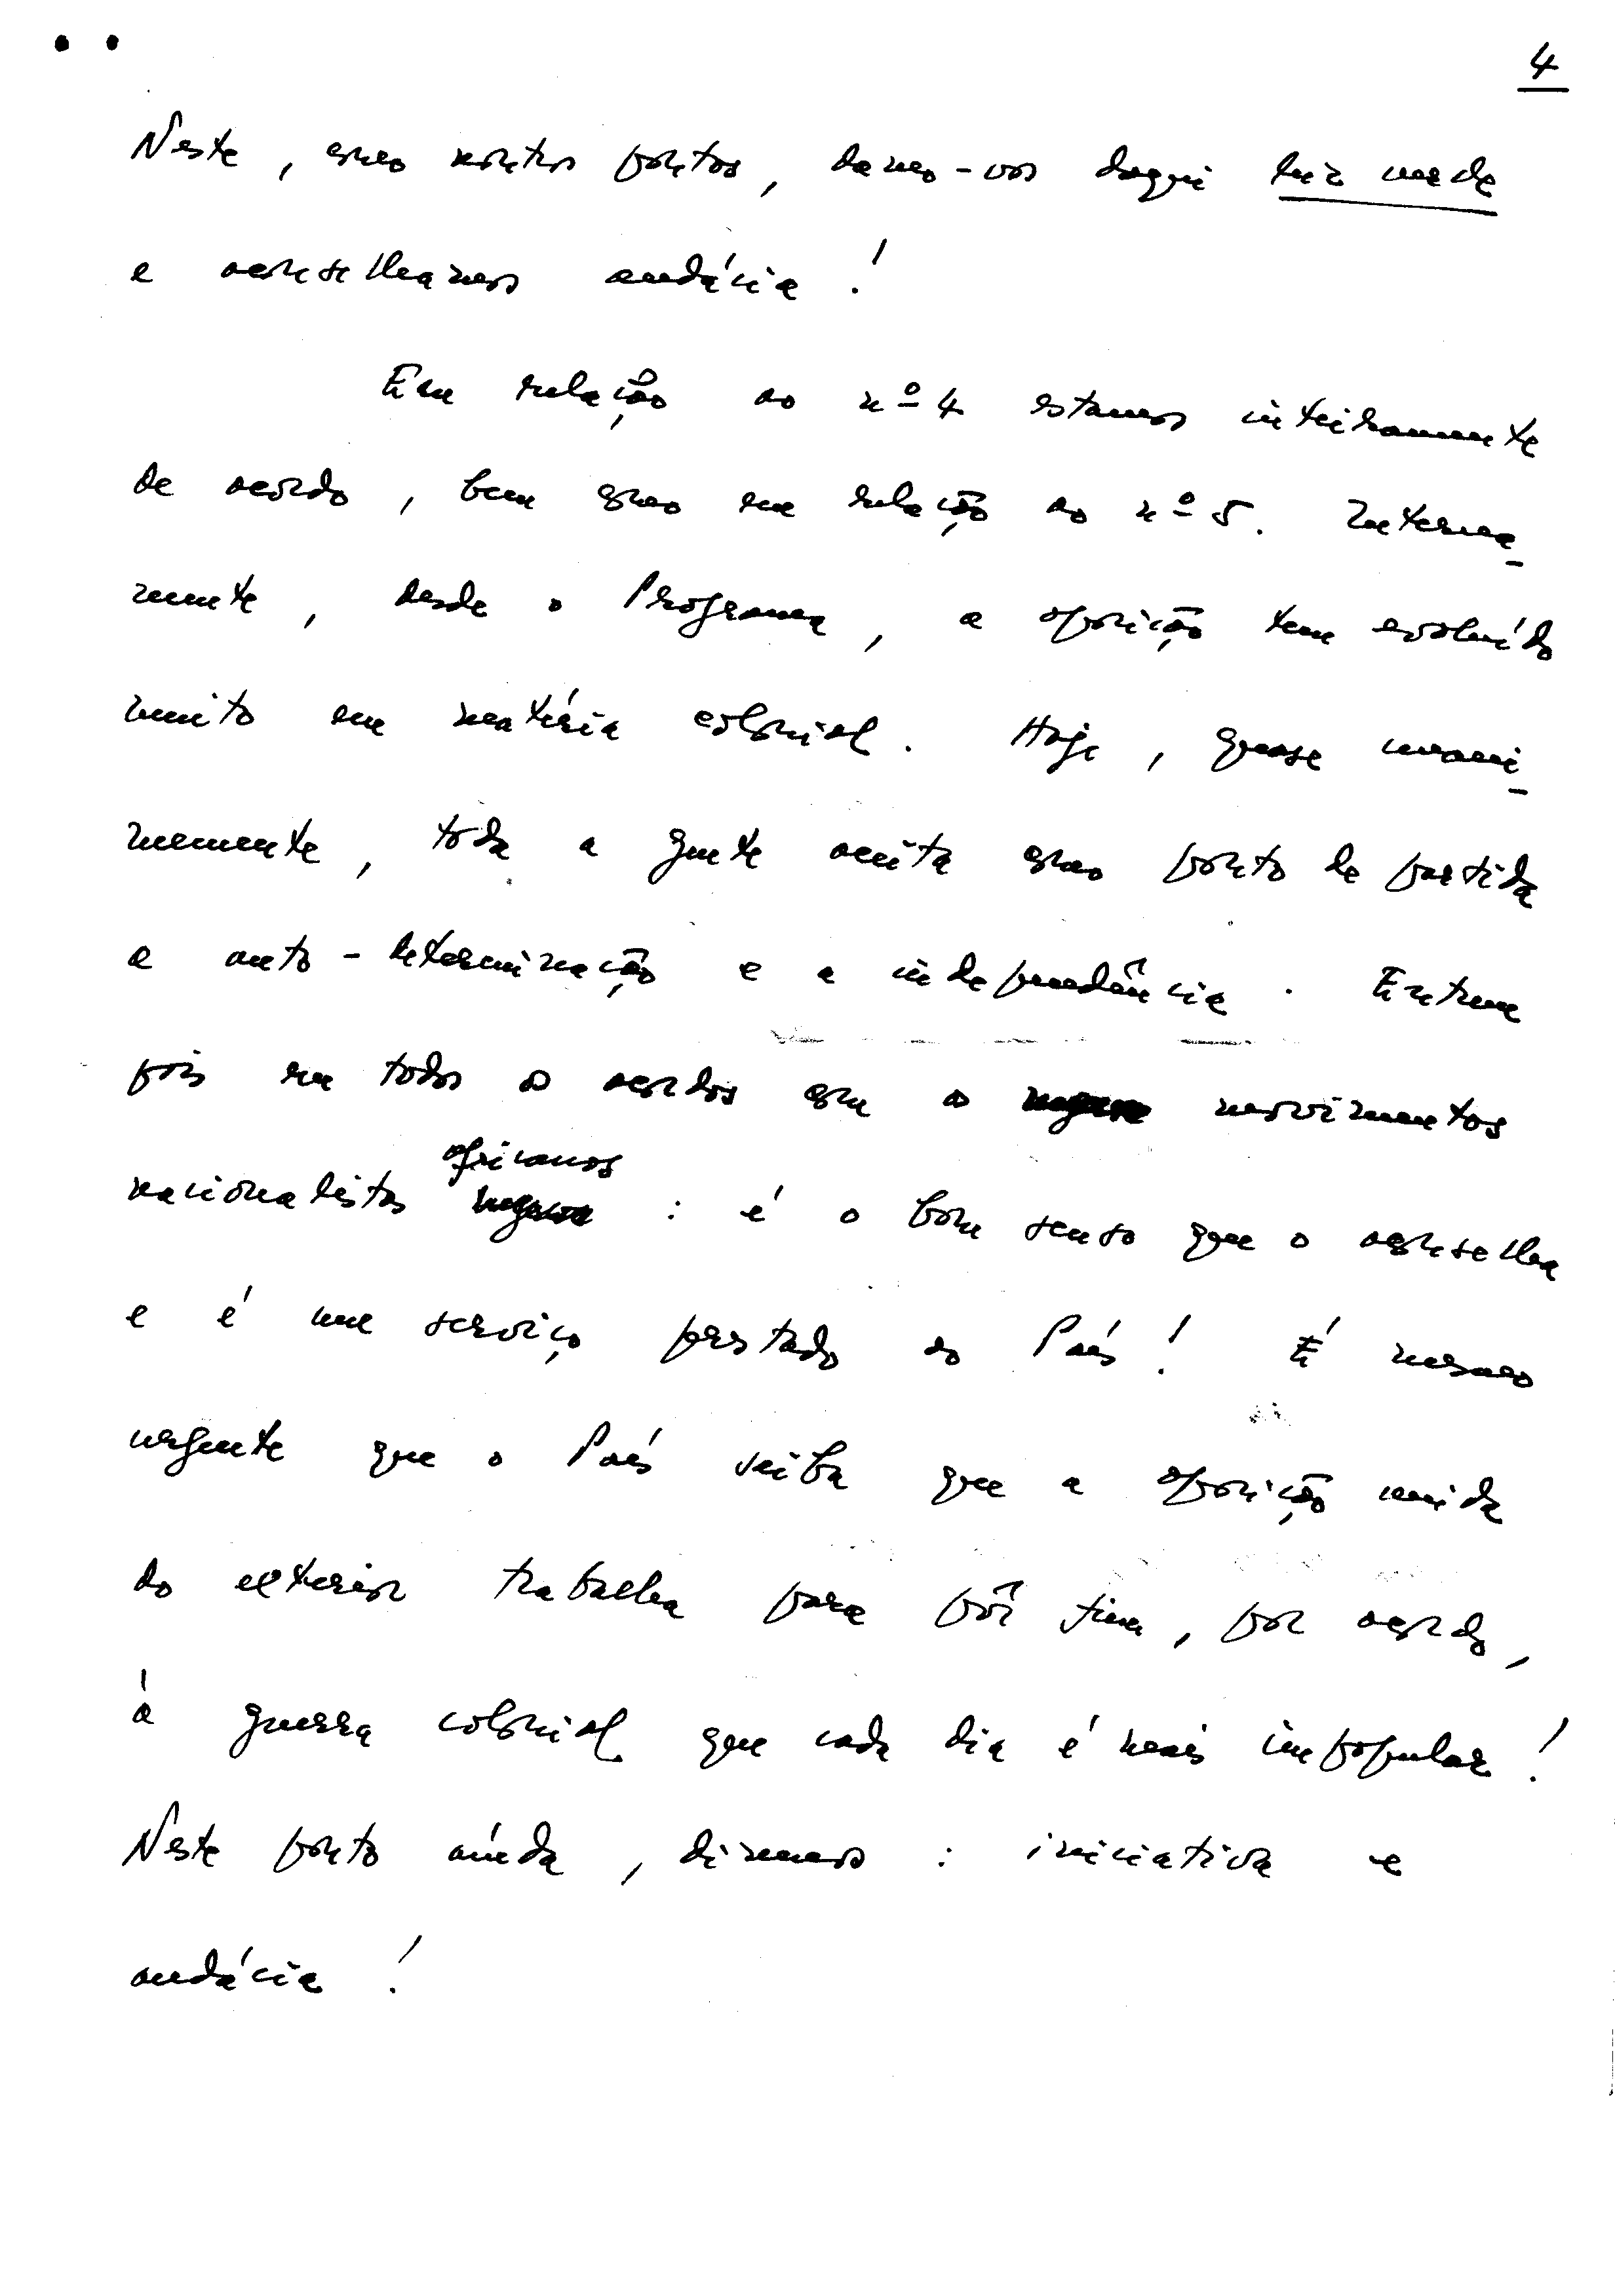 4
Neste, como noutros pontos, damos-vos daqui luz verde
e aconselhamos audácia!
Em relação ao nº 4 estamos inteiramente
de acordo, bem como em relação ao nº 5. Interna-
mente, desde o Programa, a oposição tem evoluído
muito em matéria colonial. Hoje, quase unani-
memente, toda a gente aceita como ponto de partida
a auto-determinação e a independência. Entrem
pois em todos os acordos com os movimentos
africanos
nacionalistas : é o bom senso que o aconselha
e é um serviço prestado ao País! É mesmo
urgente que o País saiba que a oposição unida
do exterior trabalha para pôr fim, por acordo,
à guerra colonial que cada dia é mais impopular!
Neste ponto ainda, diremos : iniciativa e
audácia!